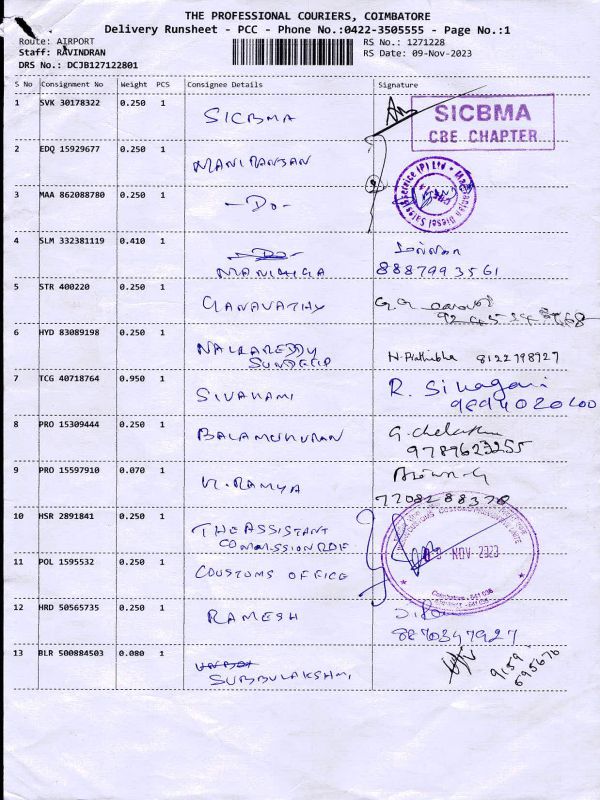 THE PROFESSIONAL COURIERS, COIMBATORE
Delivery Runsheet - PCC - Phone No.:0422-3505555 - Page No.:1
Route: AIRPORT
RS No.: 1271228
Staff: RAVINDRAN
RS Date: 09-Nov-2023
DRS No.: DCJB127122801
S No Consignment No Weight PCS Consignee Details Signature
1 SVK 30178322 0.250 1 SICBMA
SICBMA
CBE CHAPTER
2 EDQ 15929677 0.250 1 MANIRANJAN
3 MAA 862088780 0.250 1 -Do-
4 SLM 332381119 0.410 1 Do
MANDIGA 8887993561
5 STR 400220 0.250 1 GANAVATHY G.G
6 HYD 83089198 0.250 1 NALLAREDDY
SUNDEEP N. Prathibha 8122798727
7 TCG 40718764 0.950 1 SIVAKAMI R. Sivagami
9894020600
8 PRO 15309444 0.250 1 BALAMURUGAN G.
9789623255
9 PRO 15597910 0.070 1 K.RAMYA
7708288378
10 HSR 2891841 0.250 1 THE ASSISTANT
COMMISSION
NOV 2023
11 POL 1595532 0.250 1 COUSTOMS OFFICE
12 HRD 50565735 0.250 1 RAMESH
8870347927
13 BLR 500884503 0.080 1
SUBBULAKSHMI 9159
595676